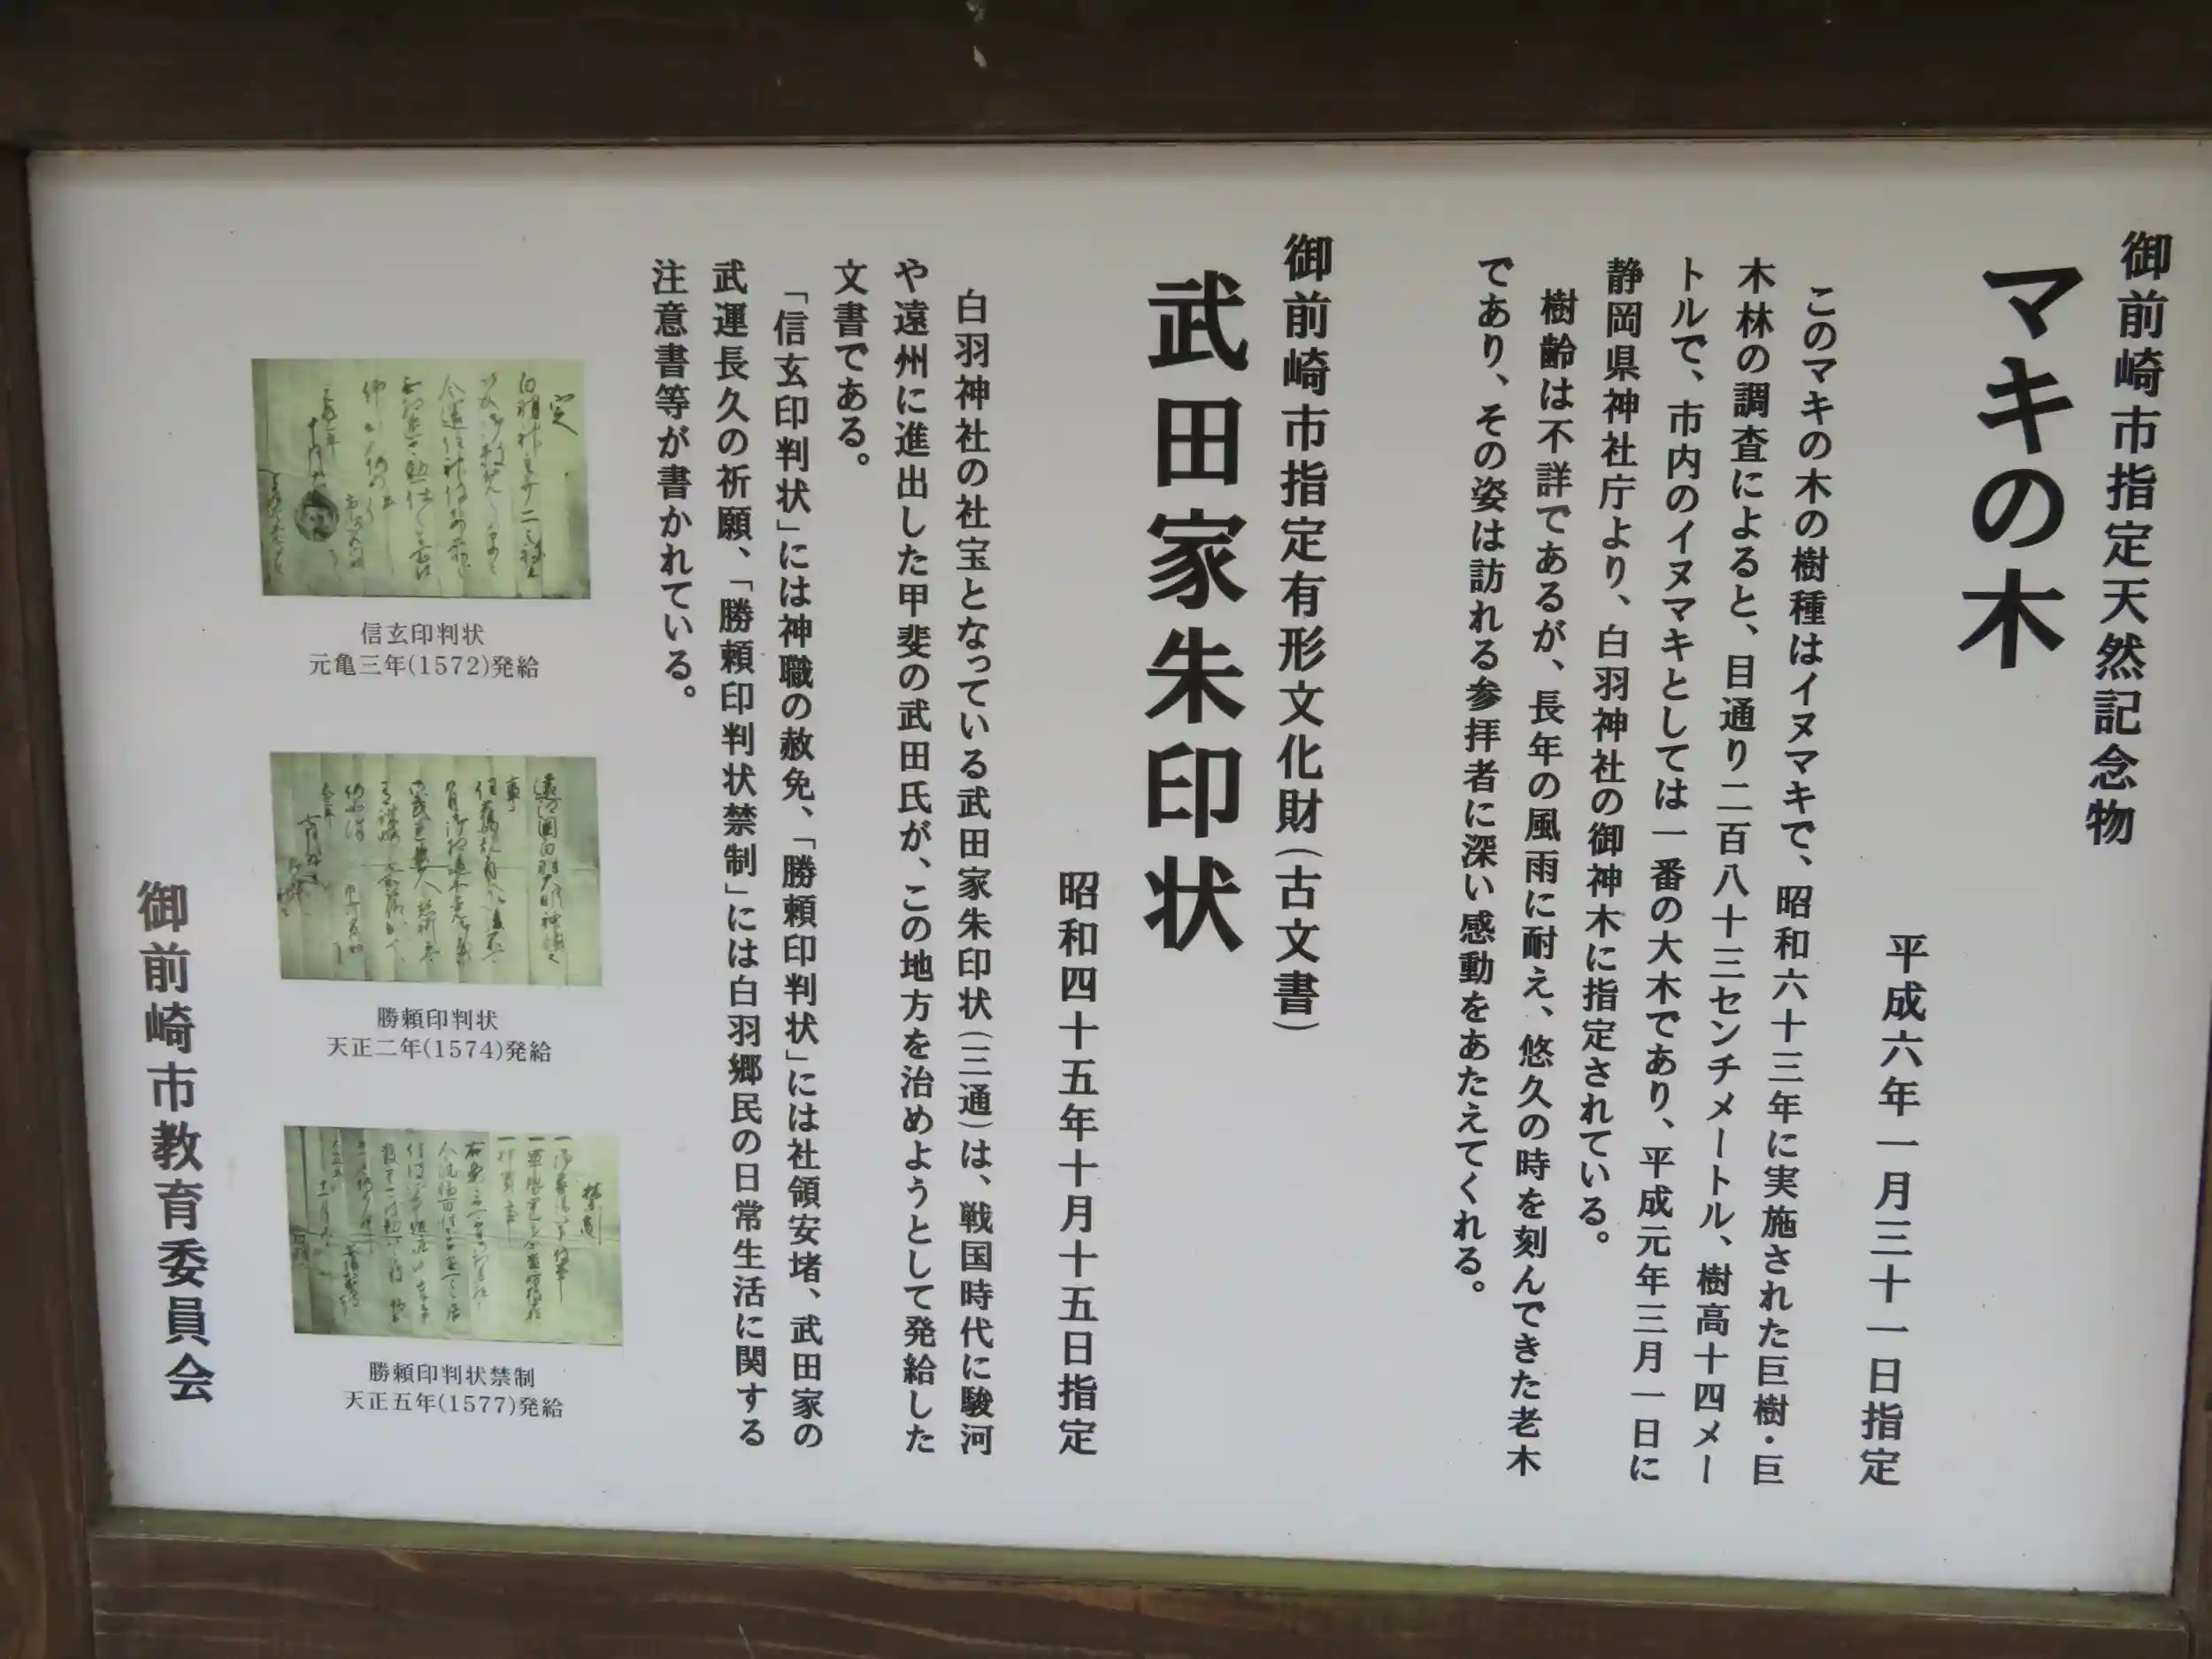 御前崎市指定天然記念物
マキの木
平成六年一月三十一日指定
このマキの木の樹種はイヌマキで、昭和六十三年に実施された巨樹・巨
木林の調査によると、目通り二百八十三センチメートル、樹高十四メー
トルで、市内のイヌマキとしては一番の大木であり、平成元年三月一日に
静岡県神社庁より、白羽神社の御神木に指定されている。
樹齢は不詳であるが、長年の風雨に耐え、悠久の時を刻んできた老木
であり、その姿は訪れる参拝者に深い感動をあたえてくれる。
御前崎市指定有形文化財(古文書)
武田家朱印状
昭和四十五年十月十五日指定
白羽神社の社宝となっている武田家朱印状(三通)は、戦国時代に駿河
や遠州に進出した甲斐の武田氏が、この地方を治めようとして発給した
文書である。
「信玄印判状」には神職の赦免、「勝頼印判状」には社領安堵、武田家の
武運長久の祈願、「勝頼印判状禁制」には白羽郷民の日常生活に関する
注意書等が書かれている。
信玄印判状
元亀三年(1572)発給
勝頼印判状
天正二年(1574)発給
勝頼印判状禁制
天正五年(1577)発給
御前崎市教育委員会